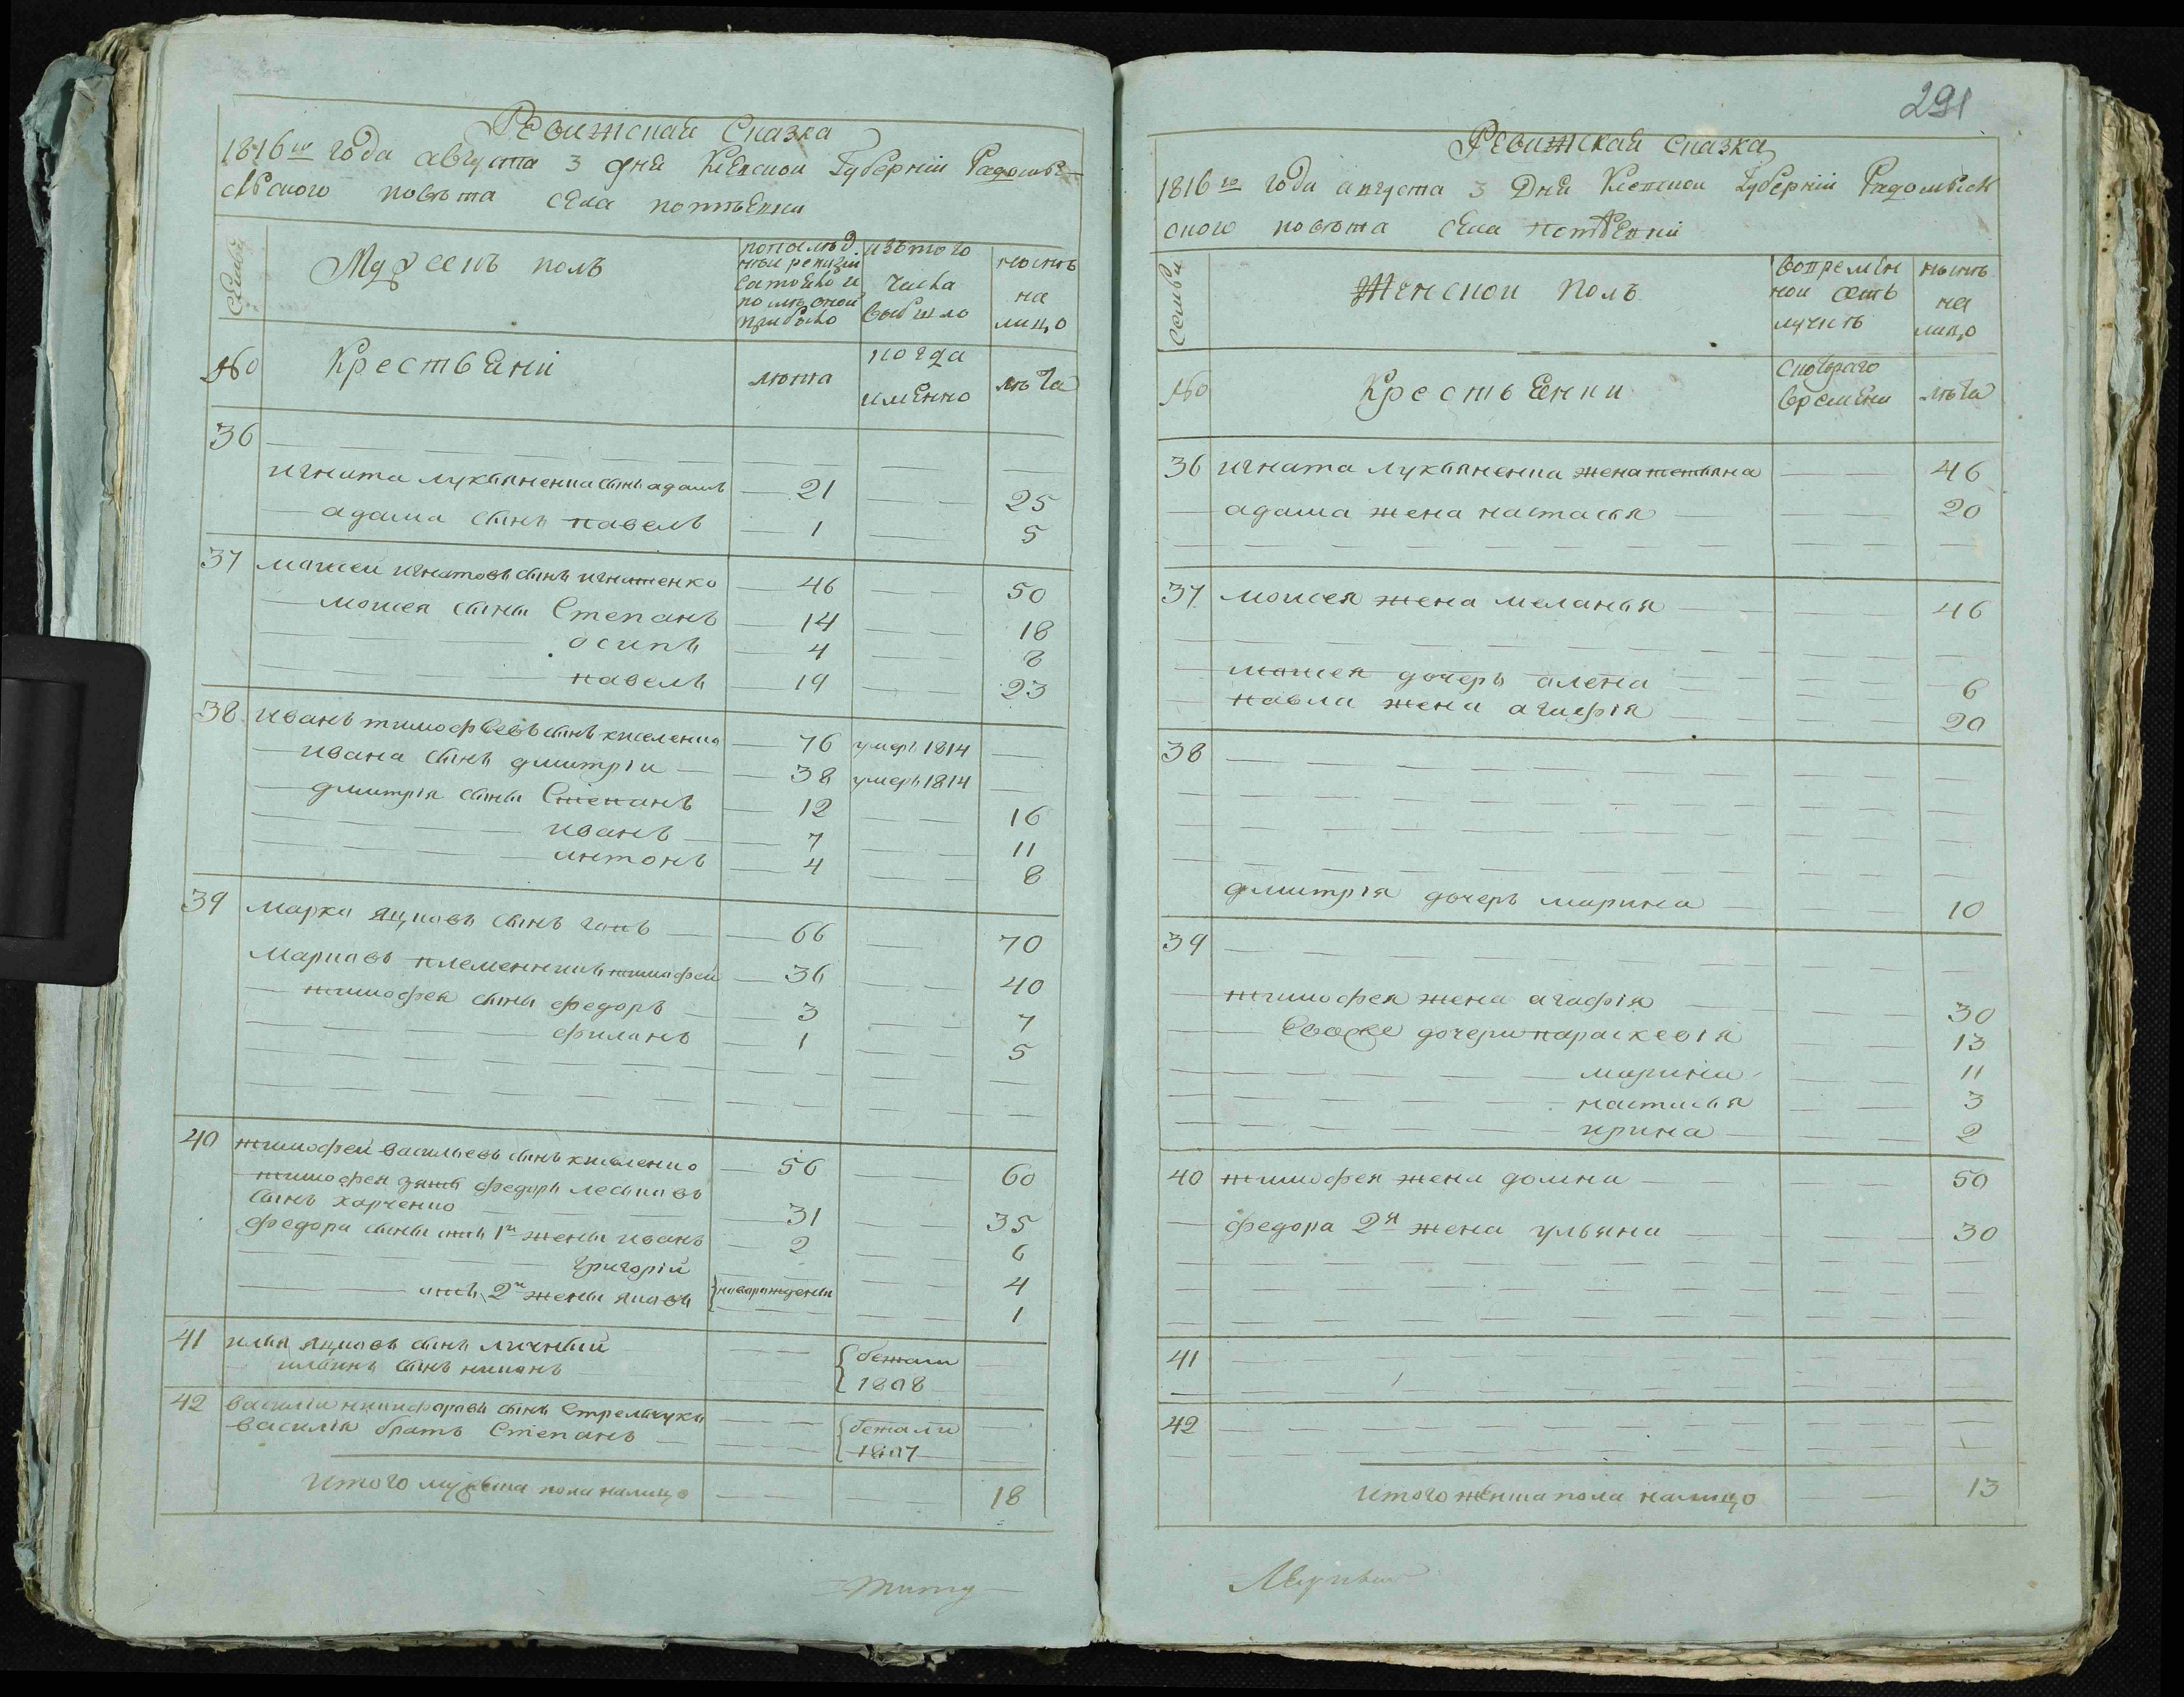 Ревижская Сказка
1816го года августа 3 дня Киевской Губернии Радомы-
сльского повѣта села потіевки
Семьи
Мужескъ полъ
попослѣд
ней ревизіи
состояло и
послѣ оной
прибыло
изътого
числа
выбыло
нынѣ
на
лицо
№
Крестьяни
лѣта
когда
имянно
лѣта
36
игната лукьяненка сынъ адамъ — 21 — — 25
адама сынъ павелъ — 1 — 5
37 мойсей игнатовъ сынъ игнатенко — 46 — — 50
мойсея сыны Степанъ — 14 — — 18
осипъ — 4 — — 8
павелъ — 19 — 23
38 иванъ тимофѣевъ сынъ киселенко — 76 умеръ 1814 —
ивана сынъ дмитрій — 38 умеръ 1814 —
дмитрія сыны Степанъ — 12 — — 16
иванъ — 7 — — 11
антонъ — 4 — — 8
39 марко яцковъ сынъ гапъ — 66 — 70
марковъ племенникъ тимофей — 36 — — 40
тимофея сыны федоръ — 3 — — 7
филонъ — 1 — — 5
40 тимофей васильевъ сынъ киселенко — 56 — — 60
тимофея зять федоръ леськовъ
сынъ харченко — 31 — — 35
федора сыны отъ 1й жены иванъ — 2 — — 6
григорій — — 4
отъ 2й жены яковъ { новорождены — — 1
41 илья яцковъ сынъ личный
ильинъ сынъ никонъ
{ бежали
1808
42 василій никифоровъ сынъ Стрельчукъ
василія братъ Степанъ
{ бежали
1807
Итого мужеска пола налицо — — — 18
291
Ревижская сказка
1816го года августа 3 Дня Киевской Губерніи Радомысл
ского повѣта села потіевки
Семьи
Женской полъ
вовремен
ной отъ
лучкѣ
нынѣ
на
лицо
№
Крестьянки
Скотораго
времени
лѣта
36 игната лукьяненка жена татьяна — — 46
адама жена настасья — — 20
37 мойсея жена меланья — — 46
мойсея дочерь алена — — 6
павла жена агафія — — 20
38
дмитрія дочерь марина — — 10
39
тимофея жена агафія — — 30
Евоже дочери параскевія — — 13
марина — — 11
настасья — — 3
ирина — — 2
40 тимофея жена домна — — 50
федора 2я жена ульяна — — 30
41
42
Итого женска пола налицо — — 13